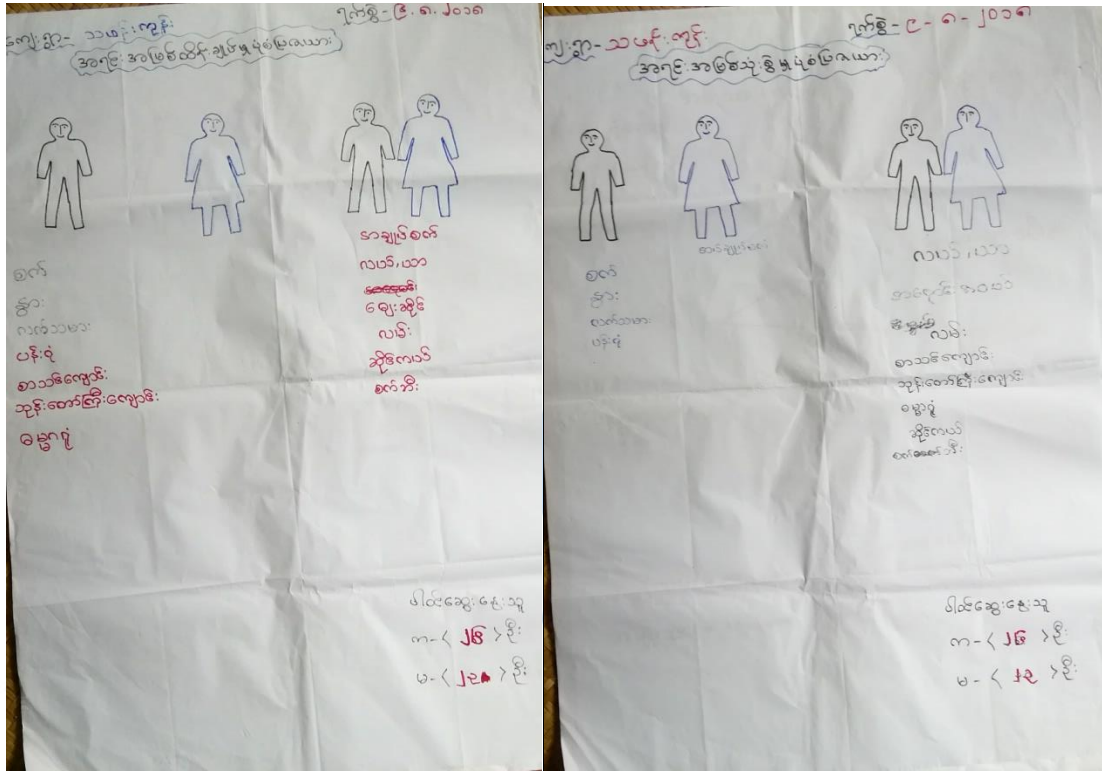 ကျေးရွာ - သဖန်းကုန်း
ရက်စွဲ - ၉.၈.၂၀၁၈
အရင်းအမြစ်ထိန်းချုပ်မှုပုံစံပြဇယား
စက်
နွား
လက်သမား
ပန်းရံ
စာသင်ကျောင်း
ဘုန်းတော်ကြီးကျောင်း
ဓမ္မာရုံ
အချုပ်စက်
လယ်၊ယာ
ဈေးဆိုင်
လမ်း
ဆိုင်ကယ်
စက်ဘီး
ပါဝင်ဆွေးနွေးသူ
က - < ၂၆ > ဦး
မ - < ၂၃ > ဦး
ကျေးရွာ - သဖန်းကုန်း
ရက်စွဲ - ၉ - ၈ - ၂၀၁၈
အရင်းအမြစ်သုံးစွဲမှုပုံစံပြဇယား
စက်
နွား
လက်သမား
ပန်းရံ
လယ်၊ယာ
လမ်း
စာသင်ကျောင်း
ဘုန်းတော်ကြီးကျောင်း
ဓမ္မာရုံ
ဆိုင်ကယ်
စက်ဘီး
ပါဝင်ဆွေးနွေးသူ
က - < ၂၆ > ဦး
မ - < ၂၃ > ဦး